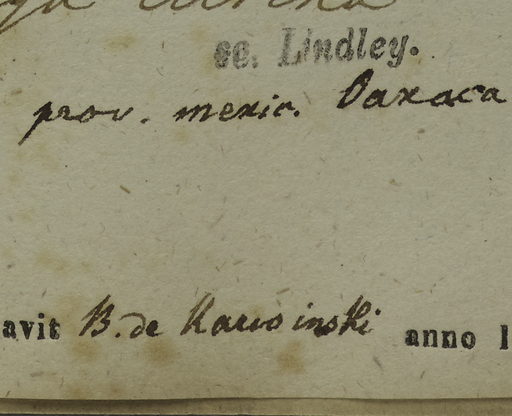 carina
sc. Lindley.
prov. mexic. Oaxaca
avit B. de Karwinski anno 1